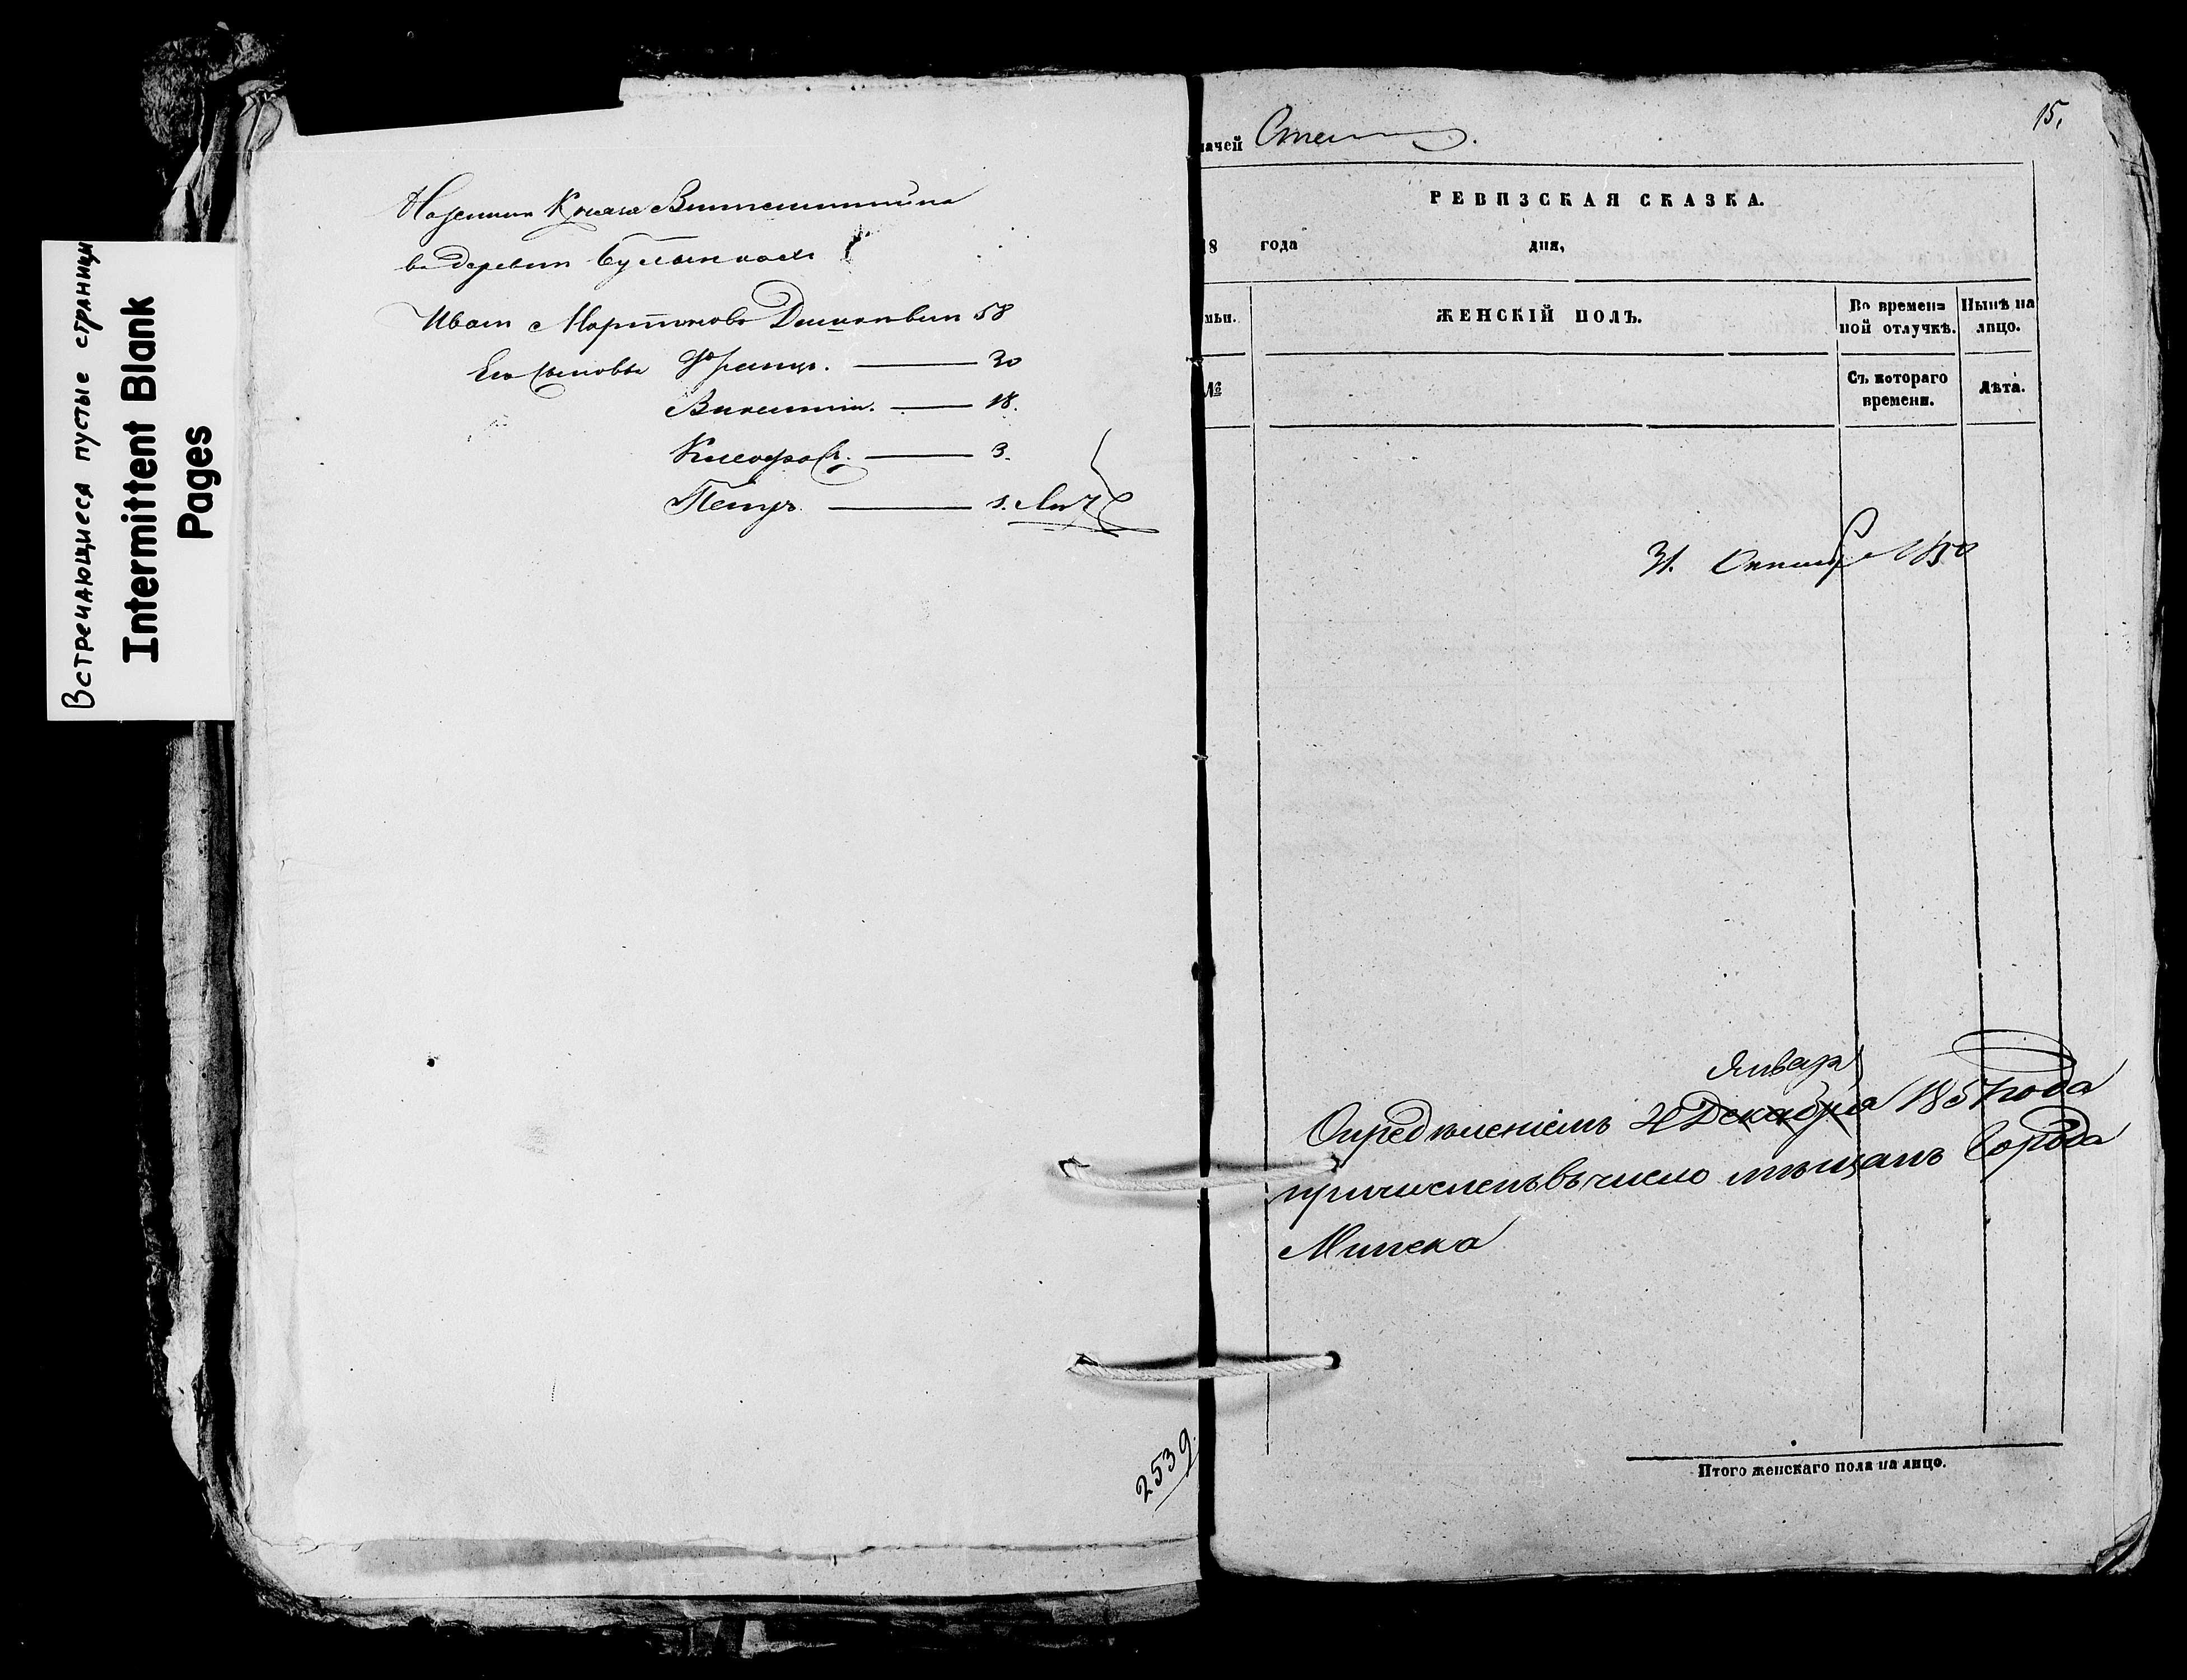 Встречающиеся пустые страницы
Intermittent Blank
Pages
Князя Витгенштейна
в деревни
Иванъ Мартиновъ 58
Его сыновья Францъ. — 30
Викентій. — 18.
— 3.
Петръ — 1.
2539
15.
ачей
РЕВИЗСКАЯ СКАЗКА.
18 года дня,
мьи. ЖЕНСКІЙ ПОЛЪ. Во времен= ной отлучкѣ. Нынѣ на лицо.
№ Съ котораго времени. Лѣта.
31. 1850
Января
Опредѣленіемъ Декабря 1857 года
причисленъ въ число мѣщанъ города
Минска
Итого женскаго пола на лицо.